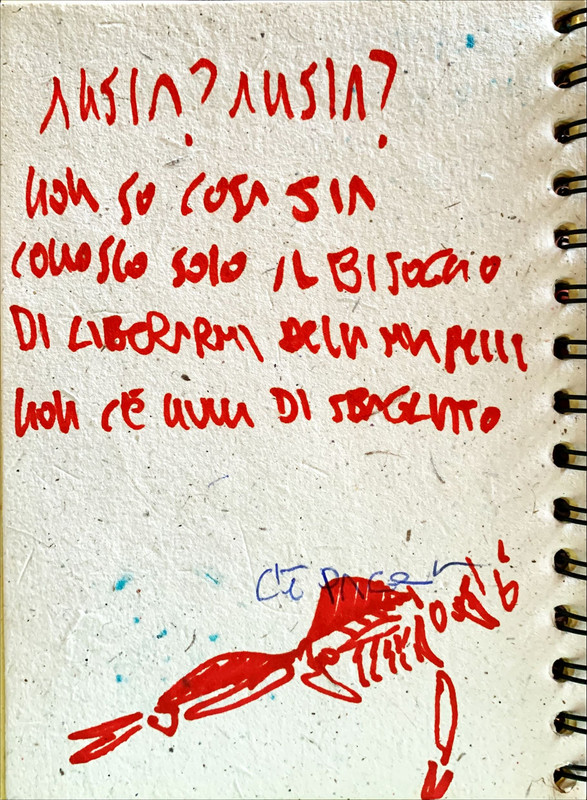 ANSIA? ANSIA?
NON SO COSA SIA
CONOSCO SOLO IL BISOGNO
DI LIBERARMI DELLA MIA PELLE
NON C'È NULLA DI SBAGLIATO
C'È